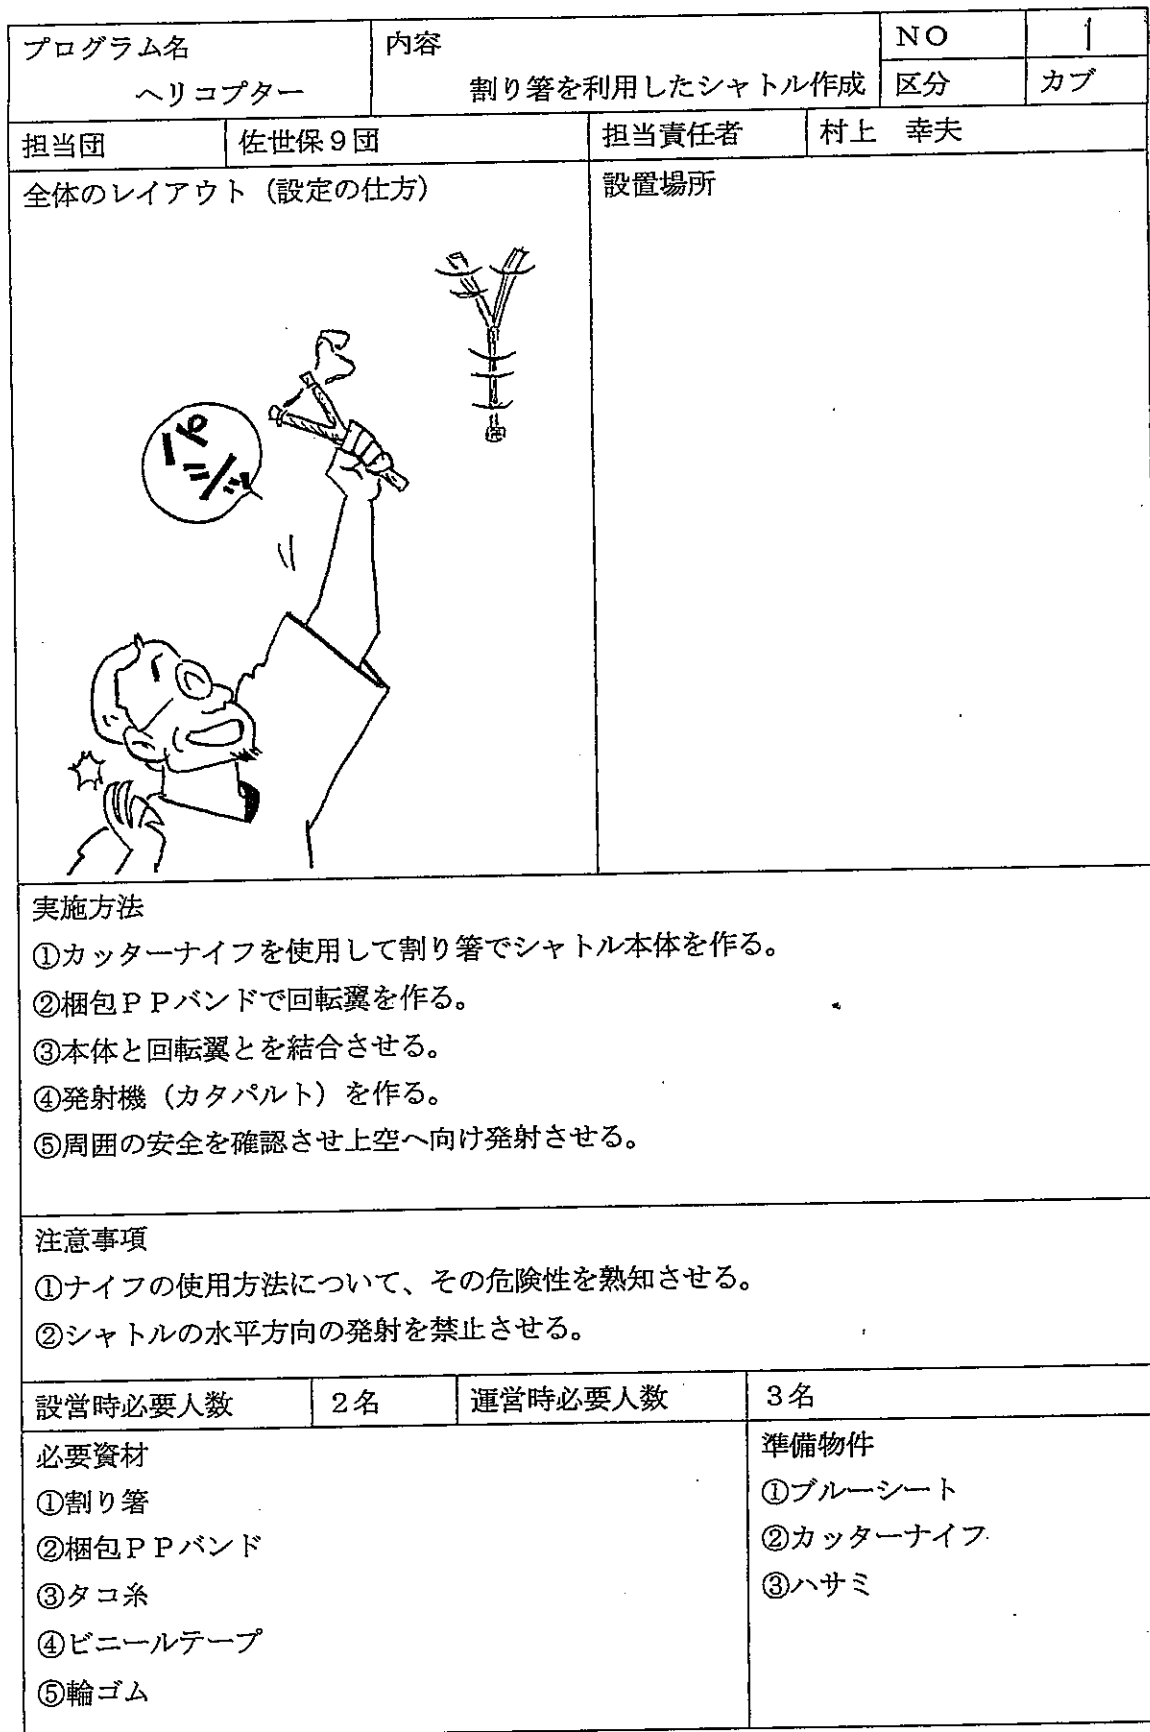 プログラム名
ヘリコプター
内容
割り箸を利用したシャトル作成
NO
1
区分
カブ
担当団
佐世保９団
担当責任者
村上　幸夫
全体のレイアウト（設定の仕方）
設置場所
パシッ
実施方法
①カッターナイフを使用して割り箸でシャトル本体を作る。
②梱包ＰＰバンドで回転翼を作る。
③本体と回転翼とを結合させる。
④発射機（カタパルト）を作る。
⑤周囲の安全を確認させ上空へ向け発射させる。
注意事項
①ナイフの使用方法について、その危険性を熟知させる。
②シャトルの水平方向の発射を禁止させる。
設営時必要人数
２名
運営時必要人数
３名
必要資材
①割り箸
②梱包ＰＰバンド
③タコ糸
④ビニールテープ
⑤輪ゴム
準備物件
①ブルーシート
②カッターナイフ
③ハサミ